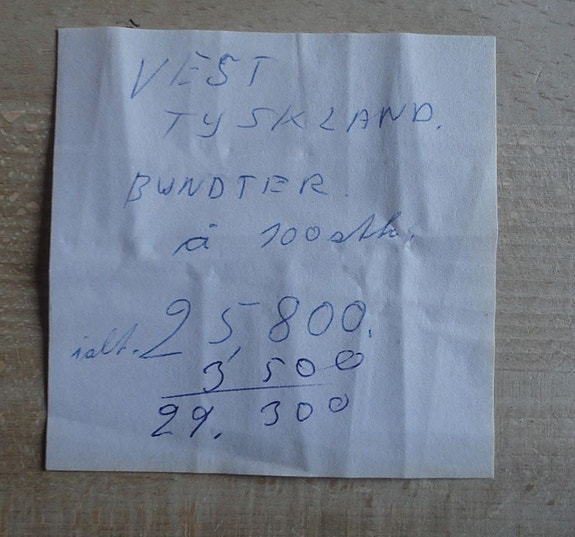 VEST
TYSKLAND.
BUNDTER.
á 100 stk.
ialt. 25,800.
3,500
29,300